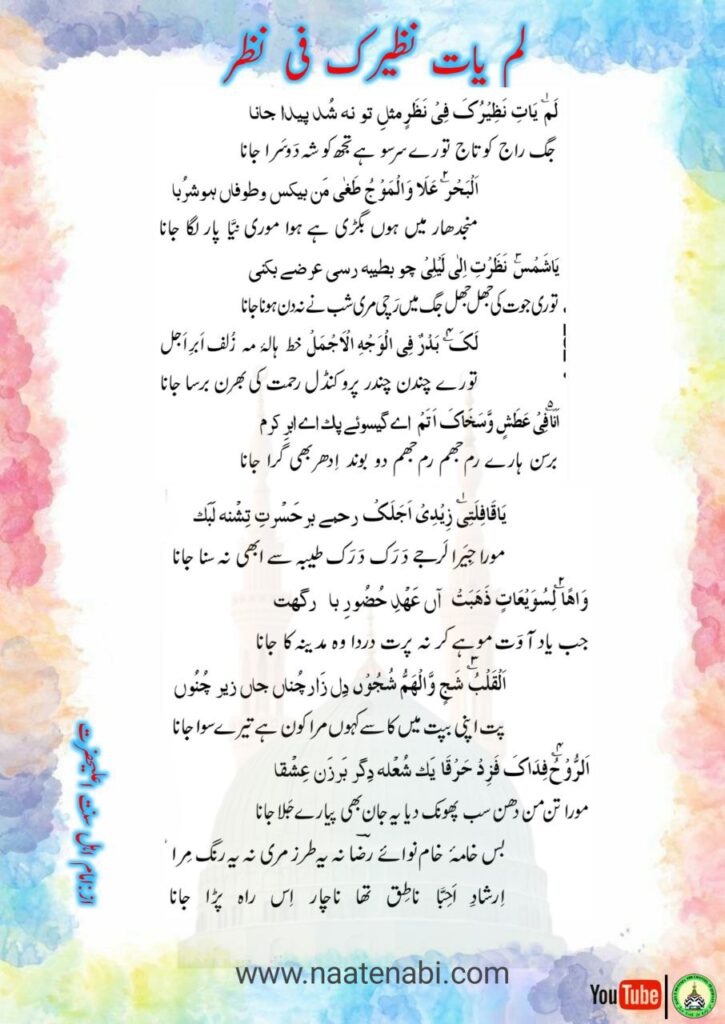 لم یات نظیرک فی نظر
لَمْ یَاتِ نَظِیْرُکَ فِیْ نَظَرٍ مثلِ تو نہ شُد پیدا جانا
جگ راج کو تاج تورے سر سو ہے تجھ کو شہِ دَوسَرا جانا
اَلْبَحْرُ عَلَا وَالْمَوْجُ طَغٰی مَن بیکس و طوفاں ہوشرُبا
منجدھار میں ہوں بگڑی ہے ہوا موری نَیَّا پار لگا جانا
یَا شَمْسُ نَظَرْتِ اِلٰی لَیْلِیْ چو بطیبہ رسی عرضے بکنی
توری جوت کی جھل جھل جگ میں رَچی مری شب نے نہ دن ہونا جانا
لَکَ بَدْرٌ فِی الْوَجْہِ الْاَجْمَلْ خط ہالۂ مہ زُلف اَبرِ اَجل
تورے چندن چندر پرو کنڈل رحمت کی بھرن برسا جانا
اَنَا فِیْ عَطَشٍ وَّسَخَاکَ اَتَمْ اے گیسوئے پاک اے ابرِ کرم
برسن ہارے رم جھم رم جھم دو بوند اِدھر بھی گرا جانا
یَا قَافِلَتِیْ زِیْدِیْ اَجَلَکْ رحمے بر حَسْرتِ تِشْنہ لَبَک
مورا جِیَرا لَرجے دَرَک دَرَک طیبہ سے ابھی نہ سنا جانا
وَاھًا لِسُوَیْعَاتٍ ذَھَبَتْ آں عَھْدِ حُضُورِ با رگھت
جب یاد آوَت موہے کر نہ پرت دردا وہ مدینہ کا جانا
اَلْقَلْبُ شَجٍ وَّالْھَمُّ شُجُوْں دِل زَار چُناں جاں زیر چُنُوں
پت اپنی بپت میں کاسے کہوں مرا کون ہے تیرے سوا جانا
اَلرُّوْحُ فِدَاکَ فَزِدْ حَرْقَا یک شُعْلہ دِگر بَرزَن عِشْقا
مورا تن من دھن سب پھونک دیا یہ جان بھی پیارے جَلا جانا
بس خامۂ خام نوائے رضاؔ نہ یہ طرز مری نہ یہ رنگ مِرا
اِرشادِ اَحِبَّا ناطِق تھا ناچار اِس راہ پڑا جانا
از: امام اہل سنت اعلیحضرت
www.naatenabi.com
YouTube